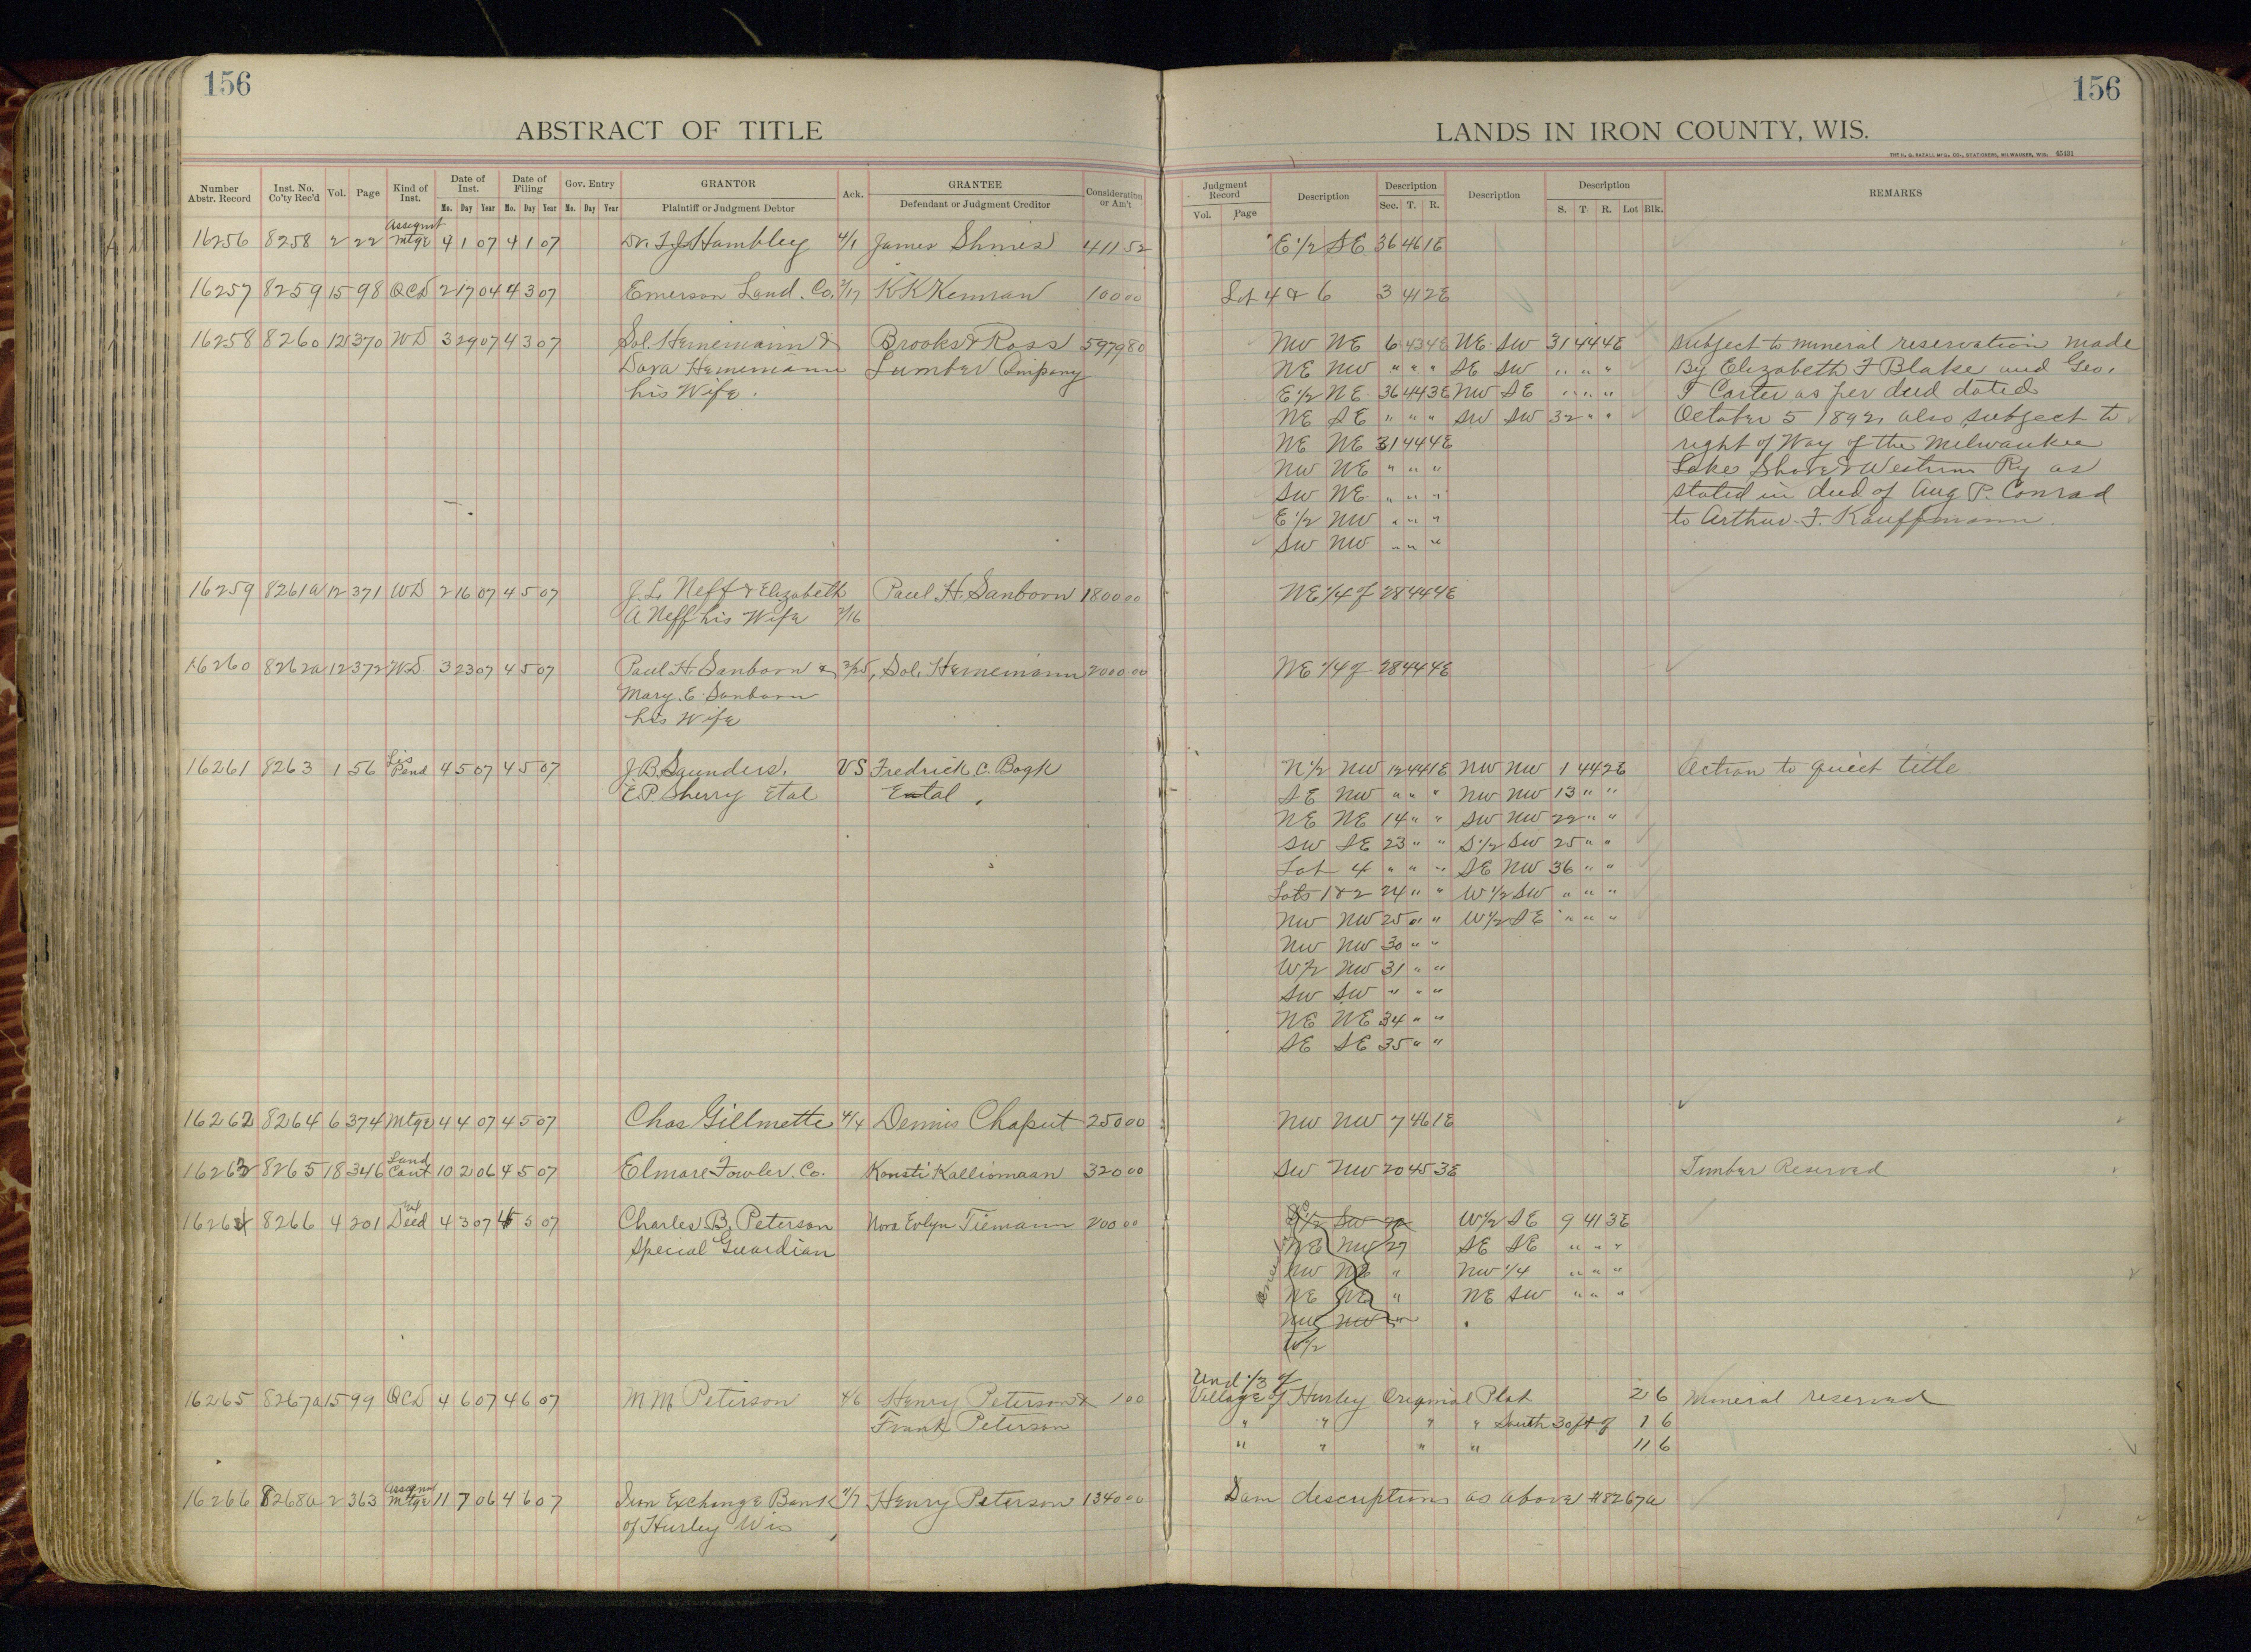 156
ABSTRACT OF TITLE
Number Abstr. Record | Inst. No. Co'ty Rec'd | Vol. | Page | Kind of Inst. | Date of Inst. Mo. Day Year | Date of Filing Mo. Day Year | Gov. Entry Mo. Day Year | GRANTOR Plaintiff or Judgment Debtor | Ack. | GRANTEE Defendant or Judgment Creditor | Consideration or Am't
Assignmt
16256 8258 2 22 Mtge 4 1 07 4 1 07 Dr. Hambley 4/1 James Shires 411 52
16257 8259 15 98 QCD 2 17 04 4 3 07 Emerson Land. Co. 2/17 K K Kennan 10 00
16258 8260 12 370 WD 3 29 07 4 3 07 Sol. Heinemann & Brooks & Ross 5979 80
Dora Heinemann Lumber Company
his Wife.
16259 8261a 12 371 WD 2 16 07 4 5 07 J. L. Neff & Elizabeth Paul H. Sanborn 1800 00
A Neff his Wife 2/16
16260 8262a 12 372 WD 3 23 07 4 5 07 Paul H. Sanborn & 3/25, Sol. Heinemann 2000 00
Mary. E. Sanborn
his Wife
Lis
16261 8263 1 56 Pend 4 5 07 4 5 07 J. B. Saunders, VS Fredrick. C. Bogk
E. P. Sherry Etal Etal,
16262 8264 6 374 Mtge 4 4 07 4 5 07 Chas Gillmette 4/4 Dennis Chaput 250 00
Land
16263 8265 18 346 Cont 10 2 06 4 5 07 Elmore Fowler. Co. Konsti Kalliomaan 320 00
16264 8266 4 201 Deed 4 3 07 4 5 07 Charles B. Peterson Nora Evlyn Tiemann 200 00
Special Guardian
16265 8267a 15 99 QCD 4 6 07 4 6 07 M M Peterson 4/6 Henry Peterson & 1 00
Frank Peterson
Assignmt
16266 8268a 2 363 Mtge 11 7 06 4 6 07 Iron Exchange Bank 11/7 Henry Peterson 1340 00
of Hurley Wis,
156
LANDS IN IRON COUNTY, WIS.
THE H. G. RAZALL MFG. CO., STATIONERS, MILWAUKEE, WIS. 45431
Judgment Record Vol. Page | Description | Description Sec. T. R. | Description | Description S. T. R. Lot Blk. | REMARKS
E 1/2 SE 36 46 1E
Lot 4 & 6 3 41 2E
NW NE 6 43 4E NE SW 31 44 4E subject to mineral reservation made
NE NW " " " SE SW " " " By Elizabeth F Blake and Geo.
E 1/2 NE 36 44 3E NW SE " " " T Carter as per deed dated
NE SE " " " SW SW 32 " " October 5 1892 also subject to
NE NE 31 44 4E right of Way of the Milwaukee
NW NE " " " Lake Shore & Western Ry as
SW NE " " " stated in deed of Aug P. Conrad
E 1/2 NW " " " to Arthur. F. Kauffmann.
SW NW " " "
NE 1/4 of 28 44 4E
NE 1/4 of 28 44 4E
N 1/2 NW 12 44 1E NW NW 1 44 2E Action to quiet title
SE NW " " " NW NW 13 " "
NE NE 14 " " SW NW 22 " "
SW SE 23 " " S 1/2 SW 25 " "
Lot 4 " " " SE NW 36 " "
Lots 1 & 2 24 " " W 1/2 SW " " "
NW NW 25 " " W 1/2 SE " " "
NW NW 30 " "
W 1/2 NW 31 " "
SW SW " " "
NE NE 34 " "
SE SE 35 " "
NW NW 7 46 1E
SW NW 20 45 3E Timber Reserved
SW W 1/2 SE 9 41 3E
NE NW 27 SE SE " " "
NW " NW 1/4 " " "
NE NE " NE SW " " "
NW NW "
W 1/2
Und 1/3 of
Village of Hurley Original Plat 2 6 Mineral reserved
" " " " South 30 ft of 1 6
" " " " 11 6
Sam descriptions as above #8267a